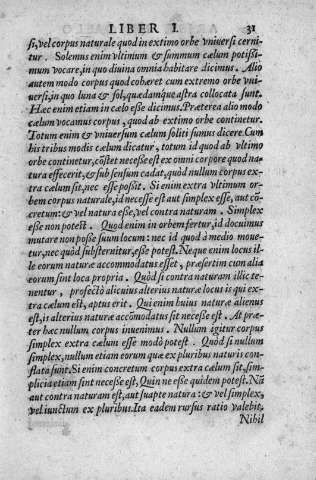 LIBER I. 31
si, vel corpus naturale quod in extimo orbe vniuersi cerni
tur. Solemus enim vltimum & summum cælum potissi-
mum vocare, in quo diuina omnia habitare dicimus. Alio
autem modo corpus quod cohæret cum extremo orbe vni-
uersi, in quo luna & sol, quædamque astra collocata sunt.
Hæc enim etiam in cælo esse dicimus. Præterea alio modo
cælum vocamus corpus, quod ab extimo orbe continetur.
Totum enim & vniuersum cælum soliti sumus dicere. Cum
his tribus modis cælum dicatur, totum id quod ab vltimo
orbe continetur, cõstet necesse est ex omni corpore quod na
tura effecerit, & sub sensum cadat, quod nullum corpus ex-
tra cælum sit, nec esse possit. Si enim extra vltimum or-
bem corpus naturale, id necesse est aut simplex esse, aut cõ-
cretum: & vel natura esse, vel contra naturam. Simplex
esse non potest. Quod enim in orbem fertur, id docuimus
mutare non posse suum locum: nec id quod à medio moue-
tur, nec quod substernitur, esse potest. Neque enim locus il-
le eorum naturæ accommodatus esset, præsertim cum alia
eorum sint loca propria. Quòd si contra naturam illic te-
nentur, profectò alicuius alterius naturæ locus is qui ex-
tra cælum est, aptus erit. Qui enim huius naturæ alienus
est, is alterius naturæ accõmodatus sit necesse est. At præ-
ter hæc nullum corpus inuenimus. Nullum igitur corpus
simplex extra cælum esse modò potest. Quòd si nullum
simplex, nullum etiam eorum quæ ex pluribus naturis con-
flata sunt. Si enim concretum corpus extra cælum sit, sim-
plicia etiam sint necesse est, Quin ne esse quidem potest. Nã
aut contra naturam est, aut suapte natura: & vel simplex,
vel iunctum ex pluribus. Ita eadem rursus ratio valebit.
Nihil